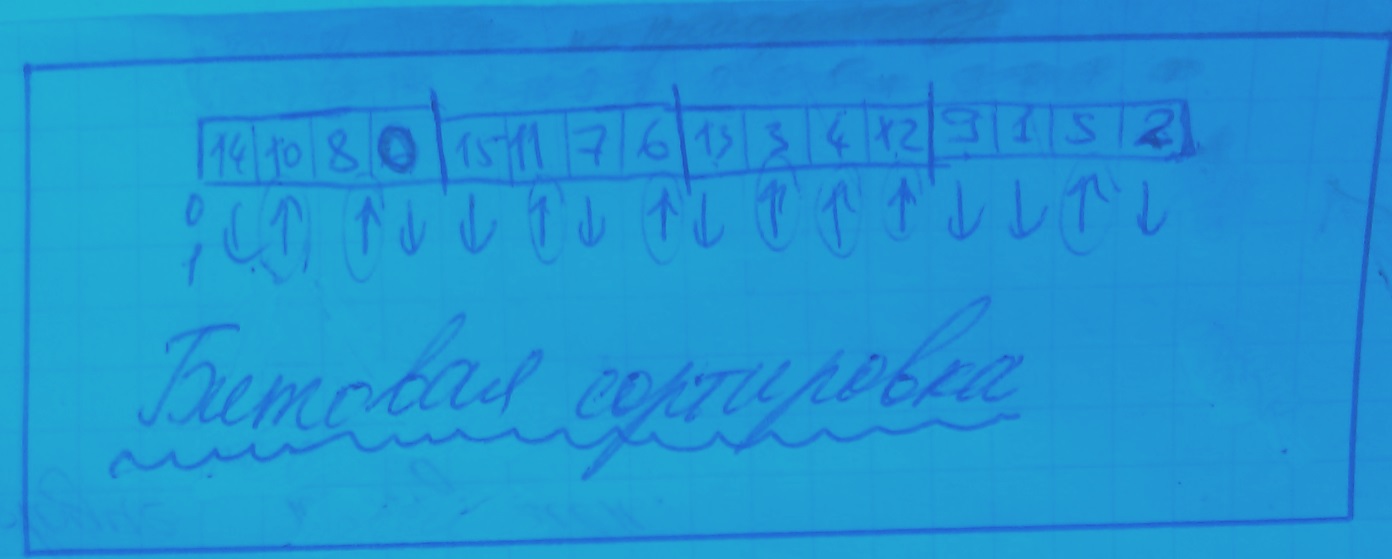 14 10 8 0 15 11 7 6 13 3 4 12 9 1 5 2
0 ↓ ↑ ↑ ↓ ↓ ↑ ↓ ↑ ↓ ↑ ↑ ↑ ↓ ↓ ↑ ↓
1
Битовая сортировка